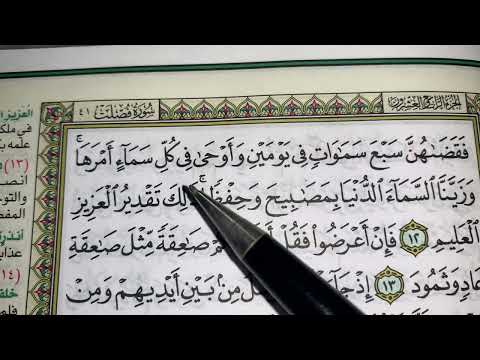 الجزء الرابع والعشرون
سورة فصلت ٤١
فَقَضَىٰهُنَّ سَبْعَ سَمَٰوَاتٍ فِي يَوْمَيْنِ وَأَوْحَىٰ فِي كُلِّ سَمَآءٍ أَمْرَهَا ۚ
وَزَيَّنَّا ٱلسَّمَآءَ ٱلدُّنْيَا بِمَصَٰبِيحَ وَحِفْظًا ۚ ذَٰلِكَ تَقْدِيرُ ٱلْعَزِيزِ
ٱلْعَلِيمِ ١٢ فَإِنْ أَعْرَضُوا۟ فَقُلْ صَٰعِقَةً مِّثْلَ صَٰعِقَةِ
عَادٍ وَثَمُودَ ١٣ إِذْ مِنۢ بَيْنِ أَيْدِيهِمْ وَمِنْ
العزيز
في ملك
علمه
(١٣)
والتو
أنذر
عذاب
(١٤)